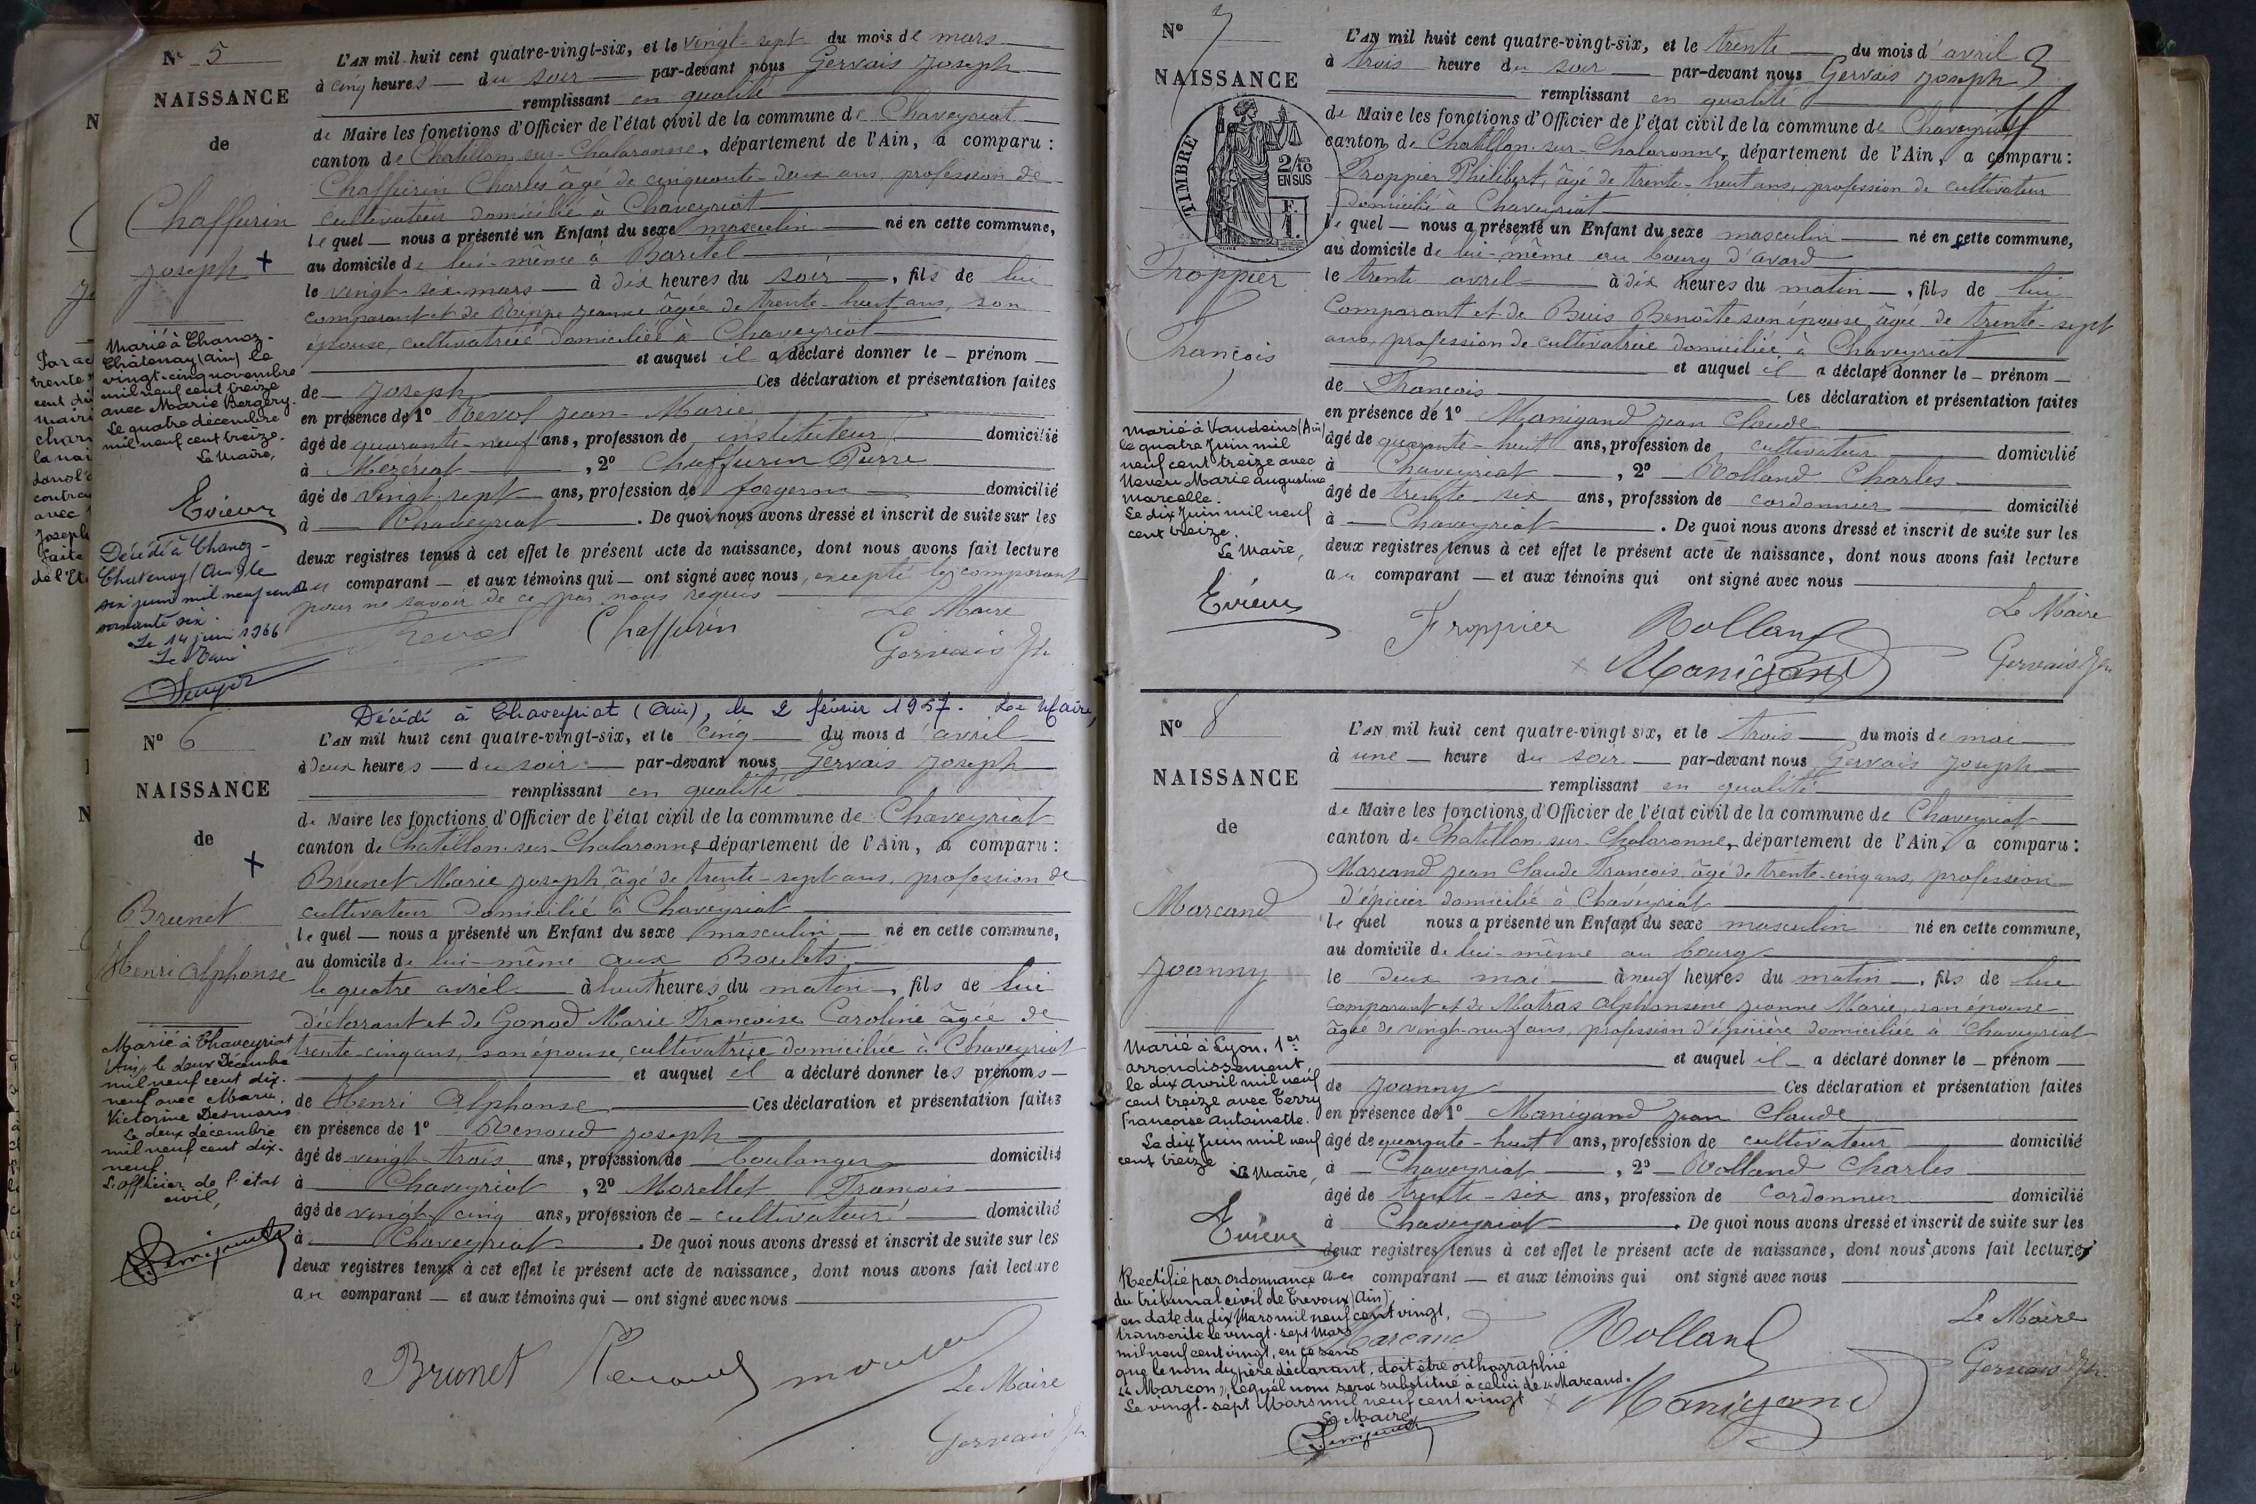 Nº 5
NAISSANCE
de
Chaffurin
Joseph +
Marié à Chanoz-
Châtenay (Ain) le
vingt-cinq novembre
mil neuf cent treize
avec Marie Bergery.
Le quatre décembre
mil neuf cent treize.
Le Maire,
Evieux
Décédé à Chanoz-
Chatenay (Ain) le
six juin mil neuf cent
soixante six.
Le 14 juin 1966
Le Maire
L'AN mil huit cent quatre-vingt-six, et le vingt-sept du mois de mars
à cinq heures du soir par-devant nous Gervais Joseph
remplissant en qualité
de Maire les fonctions d'Officier de l'état civil de la commune de Chaveyriat
canton de Chatillon-sur-Chalaronne, département de l'Ain, a comparu :
Chaffurin Charles âgé de cinquante-deux ans, profession de
cultivateur domicilié à Chaveyriat
lequel nous a présenté un Enfant du sexe masculin né en cette commune,
au domicile de lui-même à Baritel
le vingt-six mars à dix heures du soir, fils de lui
comparant et de Jeanne âgée de trente-huit ans, son
épouse, cultivatrice domiciliée à Chaveyriat
et auquel il a déclaré donner le prénom
de Joseph Ces déclaration et présentation faites
en présence de 1º Revol Jean-Marie
âgé de quarante-neuf ans, profession de instituteur domicilié
à Mézériat, 2º Chaffurin Pierre
âgé de vingt-sept ans, profession de forgeron domicilié
à Chaveyriat. De quoi nous avons dressé et inscrit de suite sur les
deux registres tenus à cet effet le présent acte de naissance, dont nous avons fait lecture
au comparant et aux témoins qui ont signé avec nous, excepté le comparant
pour ne savoir de ce par nous requis
Revol Chaffurin Le Maire
Gervais Jh
Nº 6
NAISSANCE
de
+
Brunet
Henri Alphonse
Marié à Chaveyriat
Ain, le deux Décembre
mil neuf cent dix-
neuf avec Marie
Victorine Desmaris
Le deux décembre
mil neuf cent dix-
neuf
L'officier de l'état
civil,
Décédé à Chaveyriat (Ain), le 2 février 1957. Le Maire,
L'AN mil huit cent quatre-vingt-six, et le cinq du mois d'avril
à deux heures du soir par-devant nous Gervais Joseph
remplissant en qualité
de Maire les fonctions d'Officier de l'état civil de la commune de Chaveyriat
canton de Chatillon-sur-Chalaronne, département de l'Ain, a comparu :
Brunet Marie Joseph, âgé de trente-sept ans, profession de
cultivateur domicilié à Chaveyriat
lequel nous a présenté un Enfant du sexe masculin né en cette commune,
au domicile de lui-même aux Boulets
le quatre avril à huit heures du matin, fils de lui
déclarant et de Gonod Marie Françoise Caroline âgée de
trente-cinq ans, son épouse, cultivatrice domiciliée à Chaveyriat
et auquel il a déclaré donner les prénoms
de Henri Alphonse Ces déclaration et présentation faites
en présence de 1º Renoud Joseph
âgé de vingt-trois ans, profession de boulanger domicilié
à Chaveyriat, 2º Morellet François
âgé de vingt-cinq ans, profession de cultivateur domicilié
à Chaveyriat. De quoi nous avons dressé et inscrit de suite sur les
deux registres tenus à cet effet le présent acte de naissance, dont nous avons fait lecture
au comparant et aux témoins qui ont signé avec nous
Brunet Renoud
Le Maire
Gervais Jh
Nº 7
NAISSANCE
TIMBRE
2/10
EN SUS
F.
1.
Froppier
François
Marié à Vandeins (Ain)
le quatre Juin mil
neuf cent treize avec
Neveu Marie Augustine
Marcelle.
Le dix Juin mil neuf
cent treize.
Le Maire,
Evieux
L'AN mil huit cent quatre-vingt-six, et le trente du mois d'avril 3
à trois heure du soir par-devant nous Gervais Joseph
remplissant en qualité
de Maire les fonctions d'Officier de l'état civil de la commune de Chaveyriat
canton de Chatillon-sur-Chalaronne, département de l'Ain, a comparu :
Froppier Philibert, âgé de trente-huit ans, profession de cultivateur
domicilié à Chaveyriat
lequel nous a présenté un Enfant du sexe masculin né en cette commune,
au domicile de lui-même au bourg d'avard
le trente avril à dix heures du matin, fils de lui
comparant et de Buis Benoîte son épouse, âgée de trente-sept
ans, profession de cultivatrice domiciliée à Chaveyriat
et auquel il a déclaré donner le prénom
de François Ces déclaration et présentation faites
en présence de 1º Manigand Jean Claude
âgé de quarante-huit ans, profession de cultivateur domicilié
à Chaveyriat, 2º Rolland Charles
âgé de trente-six ans, profession de cordonnier domicilié
à Chaveyriat. De quoi nous avons dressé et inscrit de suite sur les
deux registres tenus à cet effet le présent acte de naissance, dont nous avons fait lecture
au comparant et aux témoins qui ont signé avec nous
Froppier Rolland Le Maire
Manigand Gervais Jh
Nº 8
NAISSANCE
de
Marcand
Joanny
Marié à Lyon, 1er
arrondissement,
le dix avril mil neuf
cent treize avec Terry
Françoise Antoinette.
Le dix Juin mil neuf
cent treize
Le Maire,
Evieux
Rectifié par ordonnance
du tribunal civil de Trevoux (Ain)
en date du dix Mars mil neuf cent vingt,
transcrite le vingt-sept Mars
mil neuf cent vingt, en ce sens
que le nom du père déclarant, doit être orthographié
"Marcon", lequel nom sera substitué à celui de "Marcand".
Le vingt-sept Mars mil neuf cent vingt
Le Maire
L'AN mil huit cent quatre-vingt six, et le trois du mois de mai
à une heure du soir par-devant nous Gervais Joseph
remplissant en qualité
de Maire les fonctions d'Officier de l'état civil de la commune de Chaveyriat
canton de Chatillon-sur-Chalaronne, département de l'Ain, a comparu :
Marcand Jean Claude François, âgé de trente-cinq ans, profession
d'épicier domicilié à Chaveyriat
lequel nous a présenté un Enfant du sexe masculin né en cette commune,
au domicile de lui-même au bourg
le deux mai à neuf heures du matin, fils de lui
comparant et de Matras Alphonsine Jeanne Marie, son épouse
âgée de vingt-neuf ans, profession d'épicière domiciliée à Chaveyriat
et auquel il a déclaré donner le prénom
de Joanny Ces déclaration et présentation faites
en présence de 1º Manigand Jean Claude
âgé de quarante-huit ans, profession de cultivateur domicilié
à Chaveyriat, 2º Rolland Charles
âgé de trente-six ans, profession de cordonnier domicilié
à Chaveyriat. De quoi nous avons dressé et inscrit de suite sur les
deux registres tenus à cet effet le présent acte de naissance, dont nous avons fait lecture,
au comparant et aux témoins qui ont signé avec nous
Marcand Rolland Le Maire
Manigand Gervais Jh